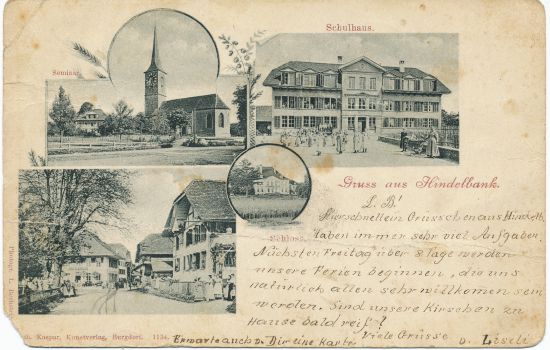 Schulhaus.
Seminar.
Schloss.
Gruss aus Hindelbank.
L. B!
Hier schnell ein Grüsschen aus Hindelb.
Haben immer sehr viel Aufgaben.
Nächsten Freitag über 8 Tage werden
unsere Ferien beginnen, die uns
natürlich allen sehr willkommen sein
werden. Sind unsere Kirschen zu
Hause bald reif?
Viele Grüsse v. Liseli
Erwarte auch v. Dir eine Karte
Photogr. L. Bechstein
Kaspar, Kunstverlag, Burgdorf. 1134.